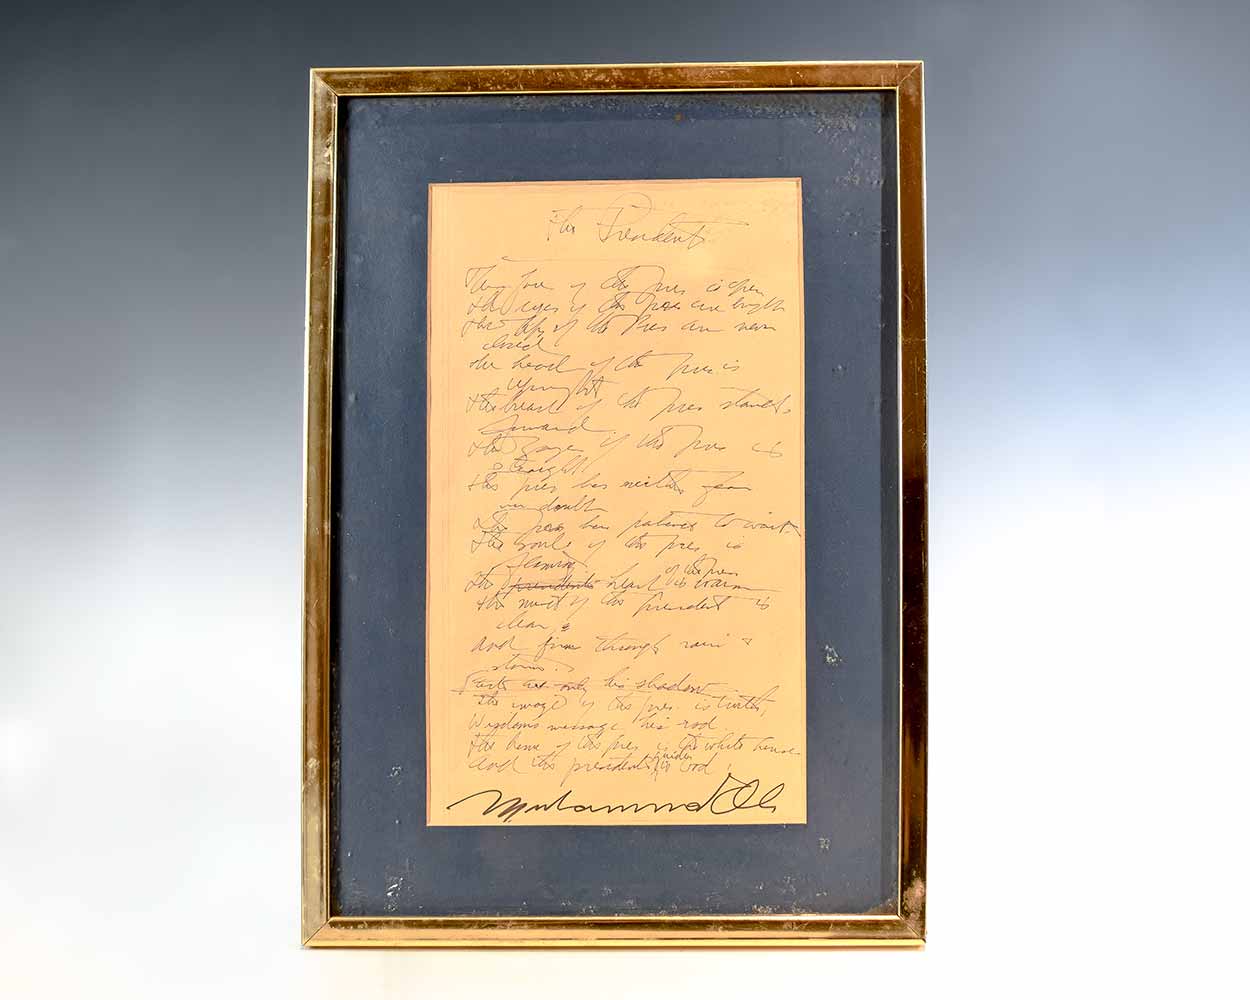 The President
The face of the Pres is open
the eyes of the Pres are bright
the lips of the Pres are never
closed
the head of the pres is
upright
the breast of the pres stands
forward
the gaze of the pres is
straight
the pres has neither fear
nor doubt
the pres has patience to wait.
the soul of the pres is
flaming.
of the pres
the presidents heart is warm
the mist of the president is
clear,
and firm through rain &
storm.
Facts are only his shadow
the image of the pres. is truth,
Wisdoms message his rod.
the home of the pres is the white house
guider
and the president is God.
Muhammad Ali